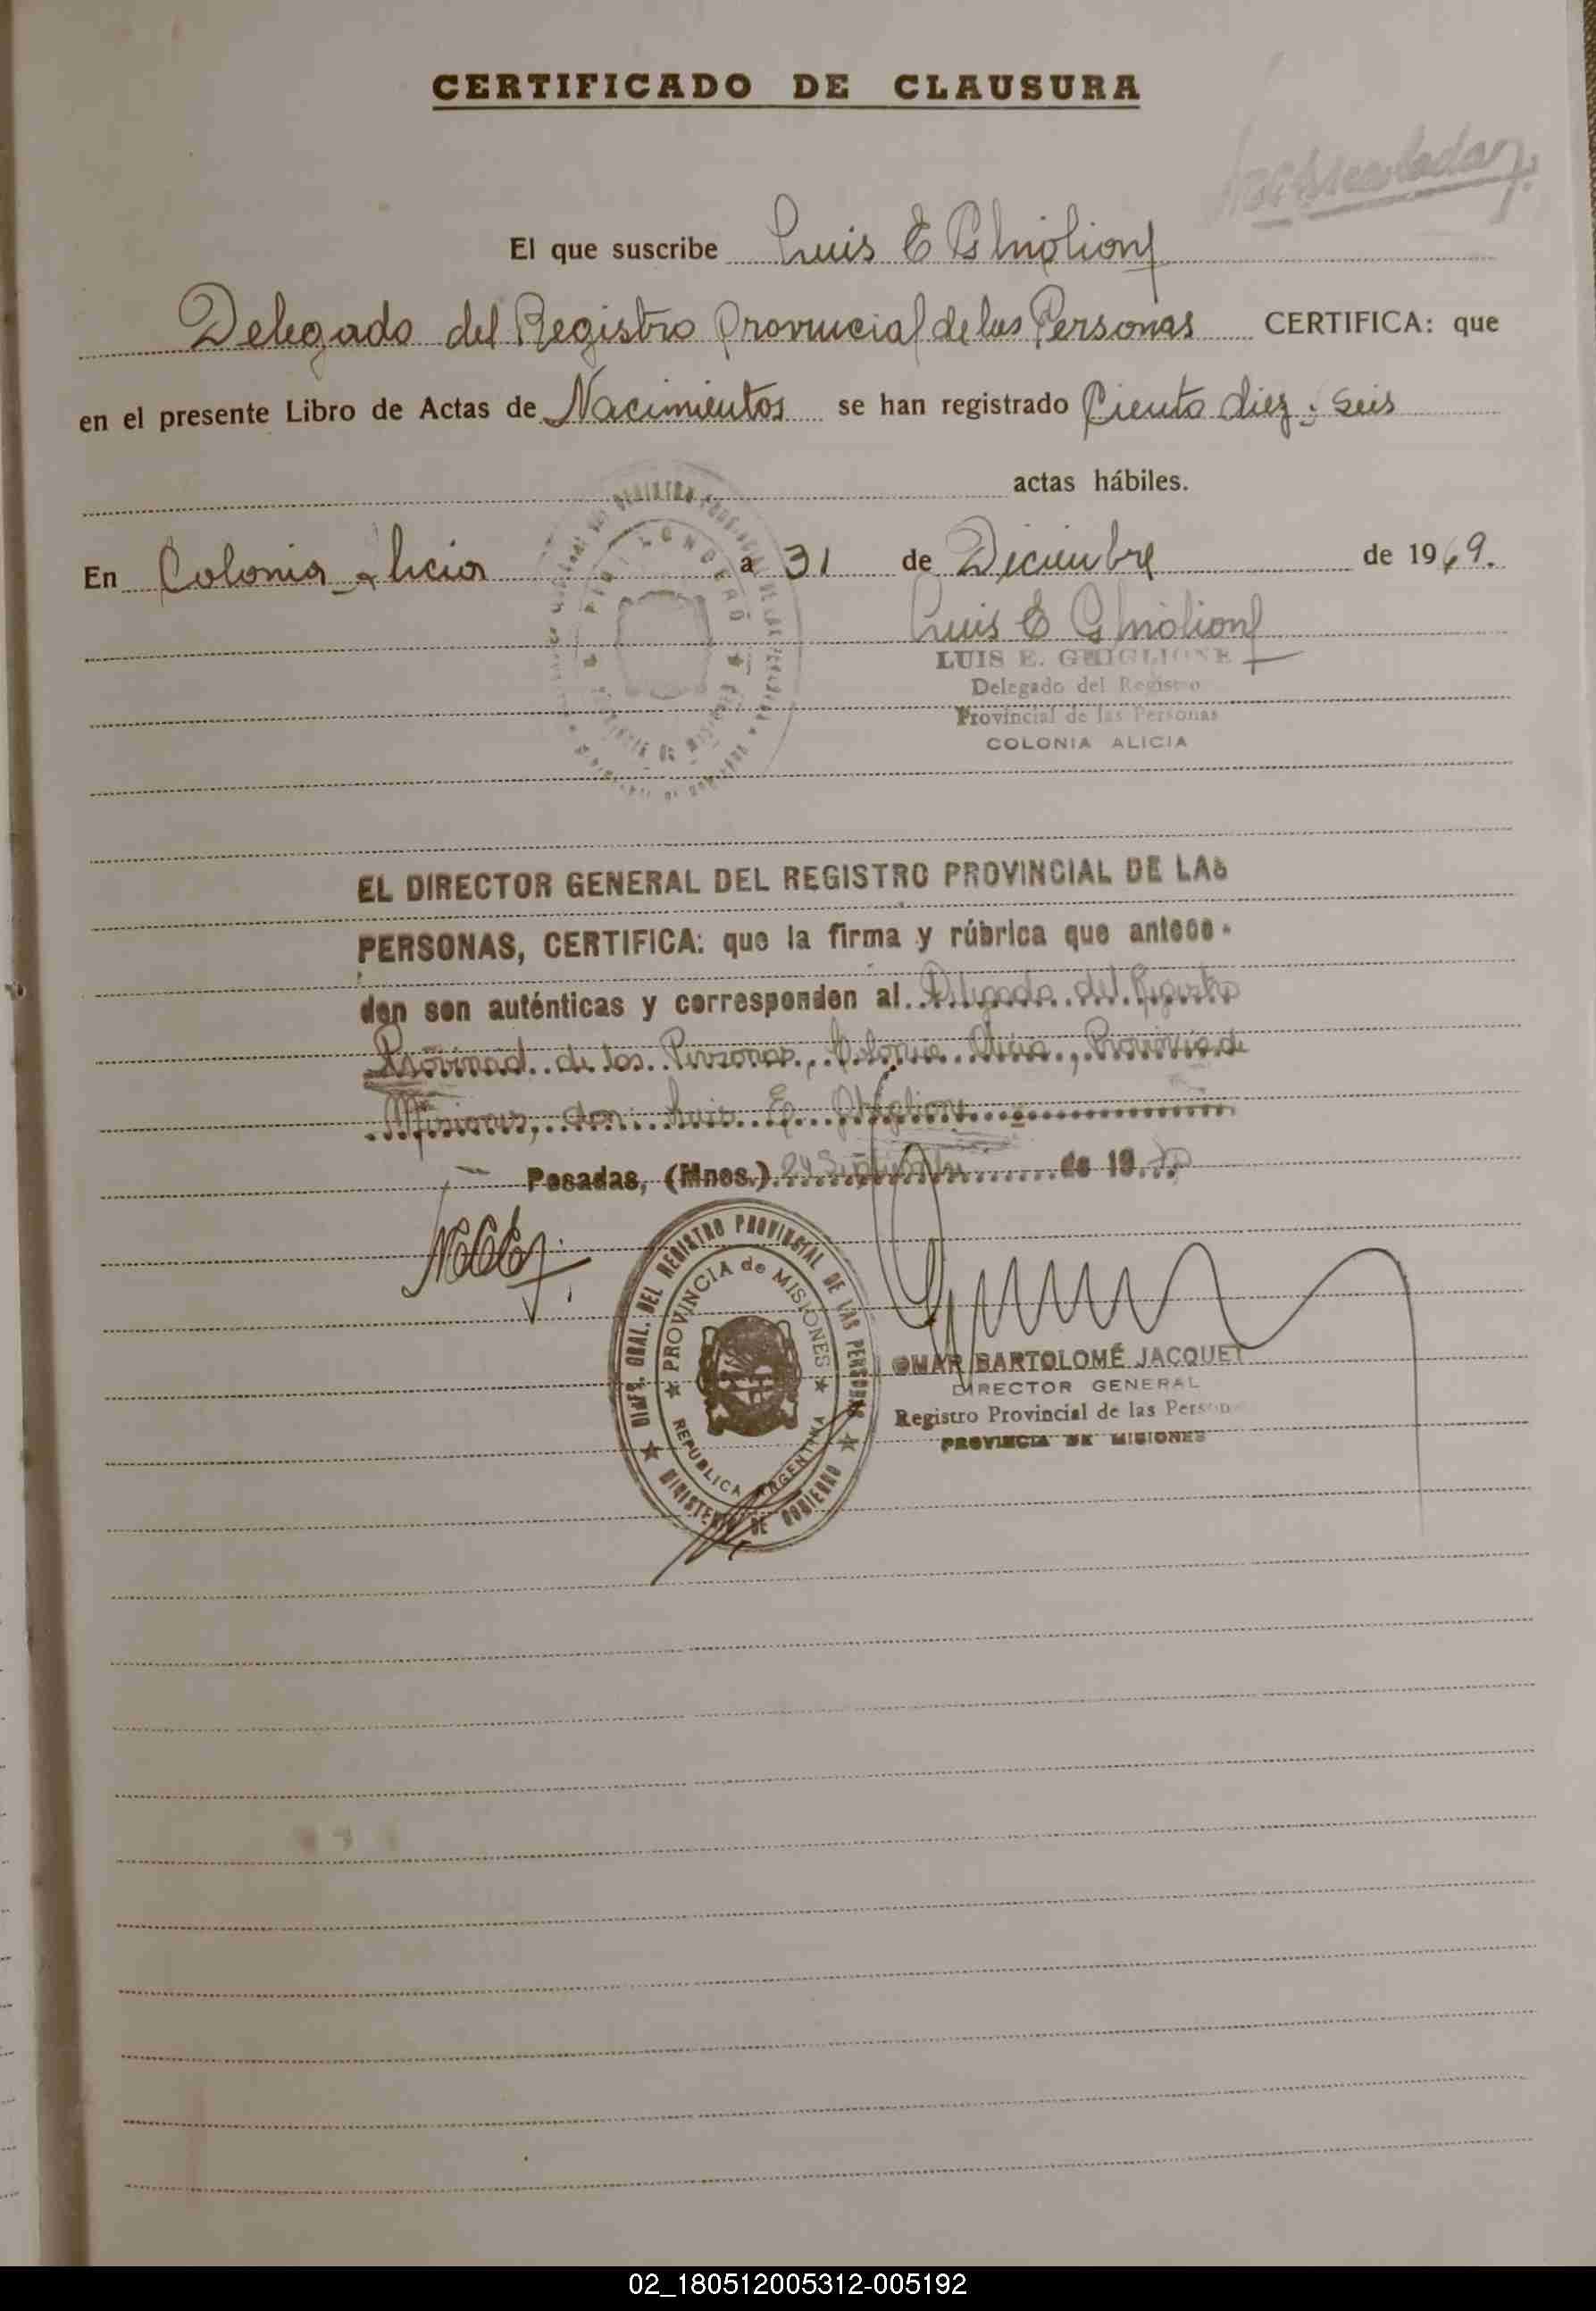 CERTIFICADO DE CLAUSURA
El que suscribe Luis E Ghiglione
Delegado del Registro Provincial de las Personas CERTIFICA: que
en el presente Libro de Actas de Nacimientos se han registrado Ciento diez y seis
actas hábiles.
En Colonia Alicia a 31 de Diciembre de 1969.
Luis E Ghiglione
LUIS E. GHIGLIONE
Delegado del Registro
Provincial de las Personas
COLONIA ALICIA
EL DIRECTOR GENERAL DEL REGISTRO PROVINCIAL DE LAS
PERSONAS, CERTIFICA: que la firma y rúbrica que antece-
den son auténticas y corresponden al Delegado del Registro
Provincial de las Personas, Colonia Alicia, Provincia de
Misiones, don: Luis E. Ghiglione
Posadas, (Mnes.) 24 Septiembre de 1970
DIREC. GRAL. DEL REGISTRO PROVINCIAL DE LAS PERSONAS
PROVINCIA de MISIONES
REPUBLICA ARGENTINA
MINISTERIO DE GOBIERNO
OMAR BARTOLOMÉ JACQUET
DIRECTOR GENERAL
Registro Provincial de las Personas
PROVINCIA DE MISIONES
02_180512005312-005192